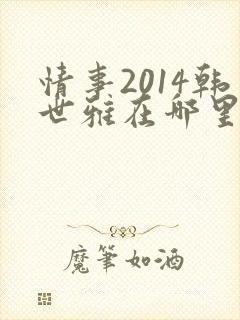 情事2014韩
世雅在哪里
魔笔如酒